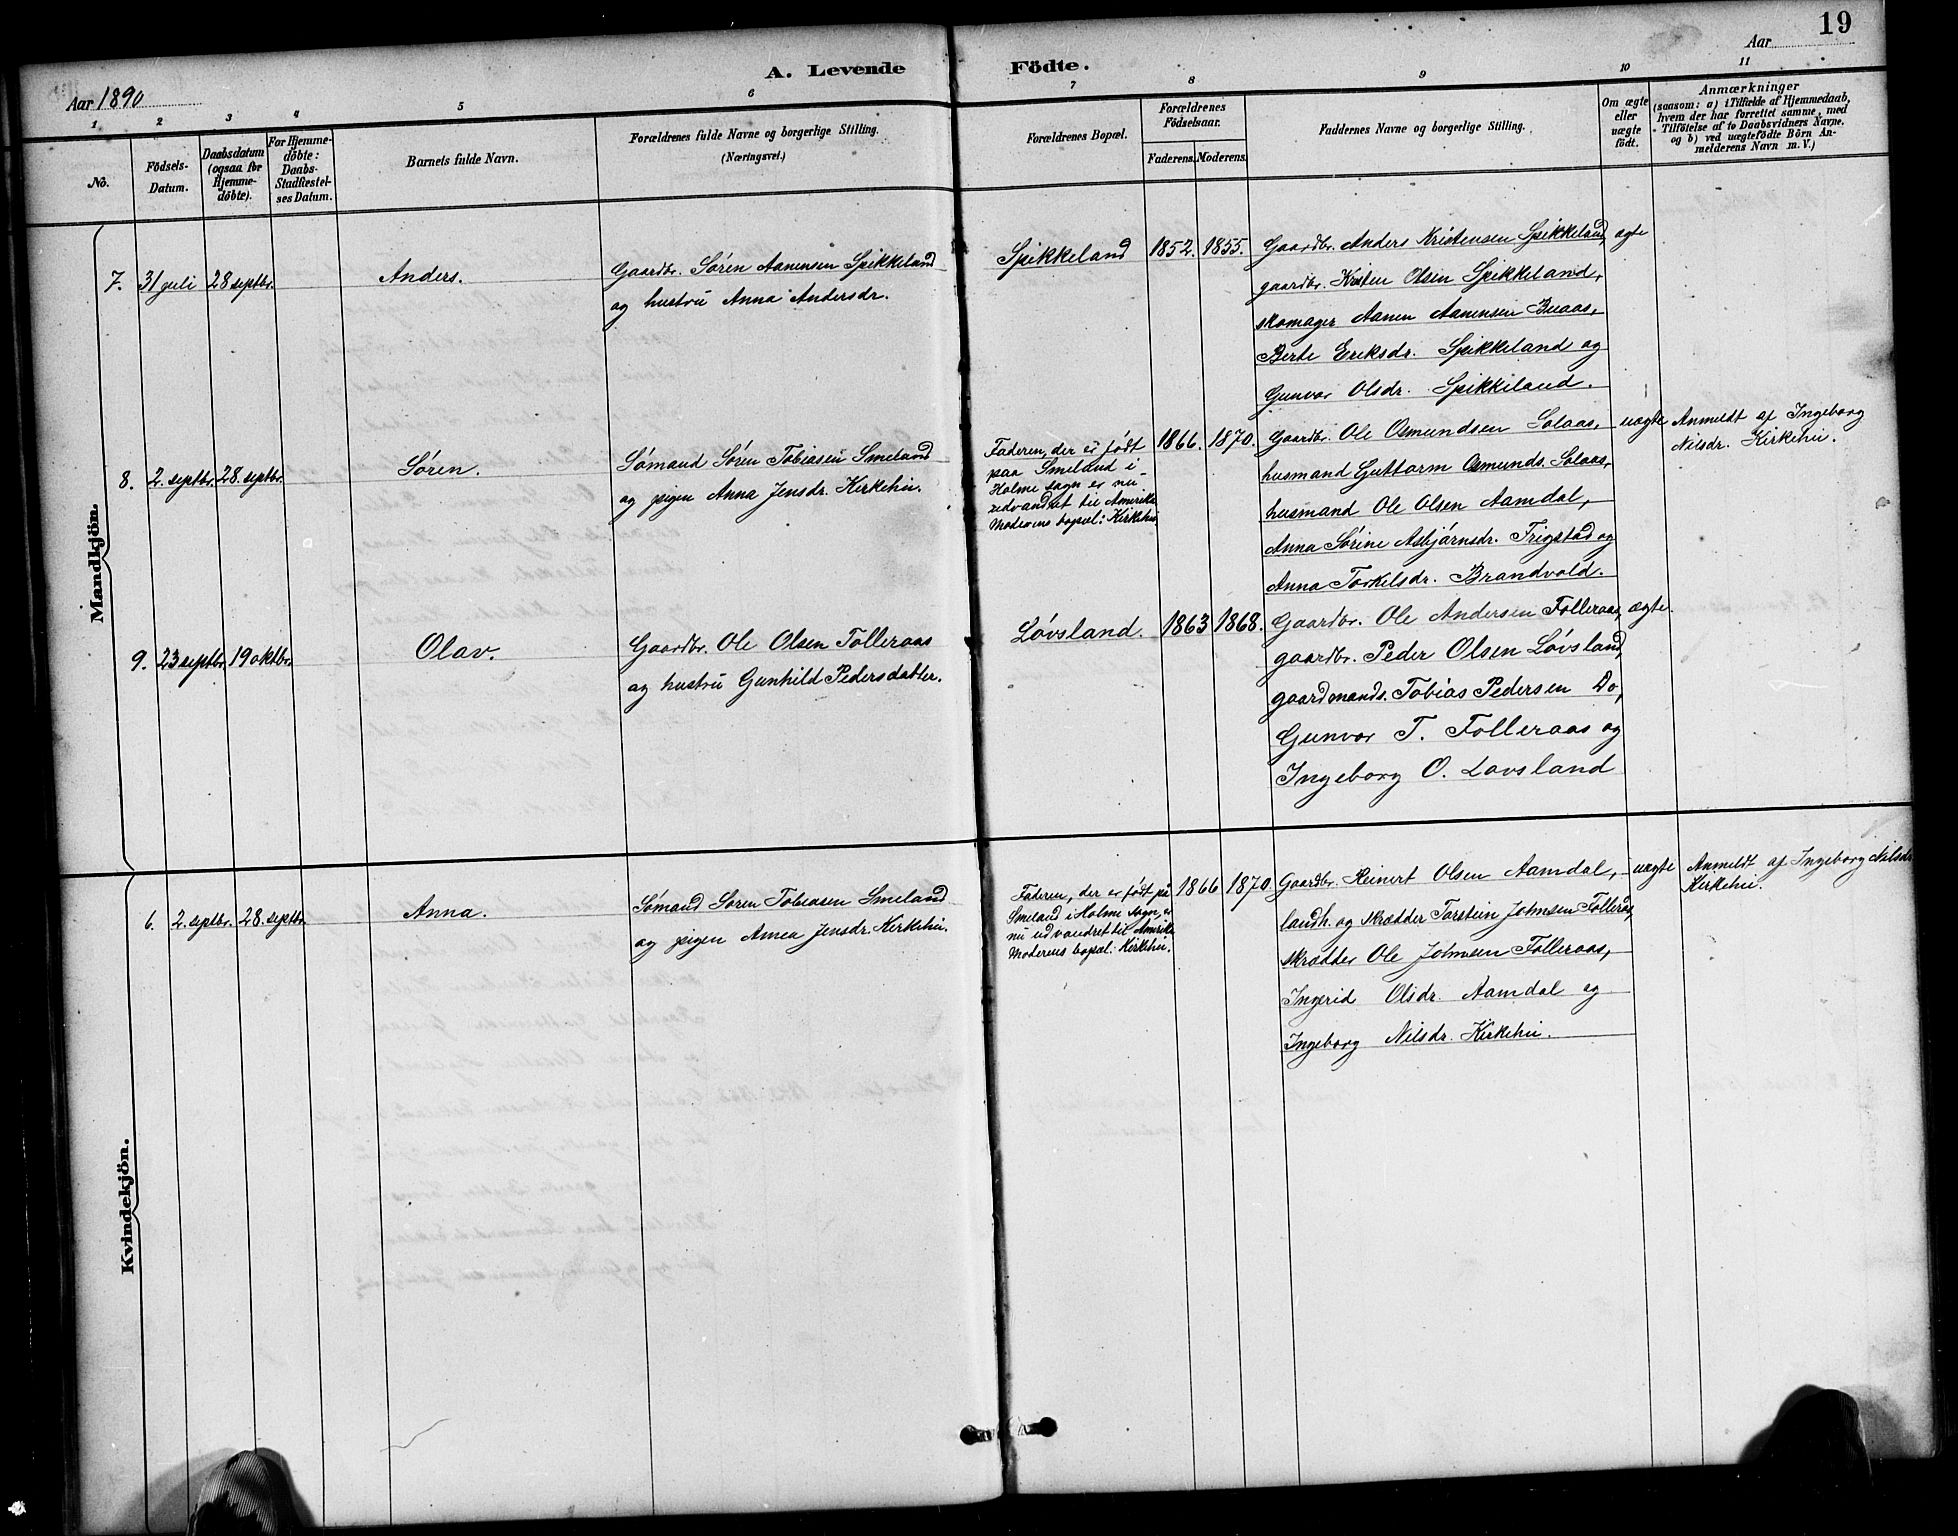 19
A. Levende Födte.
Aar 1890
Aar
1 2 3 4 5 6 7 8 9 10 11
No.
Födsels-
Datum.
Daabsdatum
(ogsaa for
Hjemme-
döbte).
For Hjemme-
döbte:
Daabs-
Stadfæstel-
ses Datum.
Barnets fulde Navn.
Forældrenes fulde Navne og borgerlige Stilling.
(Næringsvei.)
Forældrenes Bopæl.
Forældrenes
Födselsaar.
Faderens. Moderens.
Faddernes Navne og borgerlige Stilling.
Om ægte
eller
uægte
födt.
Anmærkninger
(saasom: a) i Tilfælde af Hjemmedaab,
hvem der har forrettet samme, med
Tilföielse af to Daabsvidners Navne,
og b) ved uægtefödte Börn An-
melderens Navn m. V.)
Mandkjön.
7. 31 juli 28 septbr. Anders.
Gaardbr. Søren Aanensen Spikkeland
og hustru Anna Andersdr.
Spikkeland 1852. 1855.
Gaardbr. Anders Kristensen Spikkeland,
gaardbr. Kristen Olsen Spikkeland,
skomager Aanen Aanensen Buaas,
Berte Eriksdr. Spikkeland og
Gunvor Olsdr. Spikkeland.
ægte
8. 2. septbr. 28. septbr. Søren.
Sømand Søren Tobiasen Smeland
og pigen Anna Jensdr. Kirkehei.
Faderen, der er født
paa Smeland i
Holme sogn er nu
udvandret til Amerika
Moderens bopæl: Kirkehei
1866. 1870.
Gaardbr. Ole Osmundsen Solaas,
husmand Guttorm Osmunds. Solaas,
husmand Ole Olsen Aamdal,
Anna Sørine Asbjørnsdr. Trigstad og
Anna Torkelsdr. Brandvold.
uægte
Anmeldt af Ingeborg
Nilsdr. Kirkehei.
9. 23 septbr. 19 oktbr. Olav.
Gaardbr. Ole Olsen Tolleraas
og hustru Gunhild Pedersdatter.
Løvsland. 1863 1868.
Gaardbr. Ole Andersen Følleraas,
gaardbr. Peder Olsen Løvsland,
gaardmands. Tobias Pedersen Do,
Gunvor T. Følleraas og
Ingeborg O. Løvsland
ægte.
Kvindekjön.
6. 2. septbr. 28. septbr. Anna.
Sømand Søren Tobiasen Smeland
og pigen Anna Jensdr. Kirkehei.
Faderen, der er født på
Smeland i Holme sogn, er
nu udvandret til Amerika
Moderens bopæl: Kirkehei.
1866 1870
Gaardbr. Reinert Olsen Aamdal,
landh. og skrædder Torstein Johnsen Følleraas,
skrædder Ole Johnsen Følleraas,
Ingerid Olsdr. Aamdal og
Ingeborg Nilsdr. Kirkehei.
uægte
Anmeldt af Ingeborg Nilsdr.
Kirkehei.